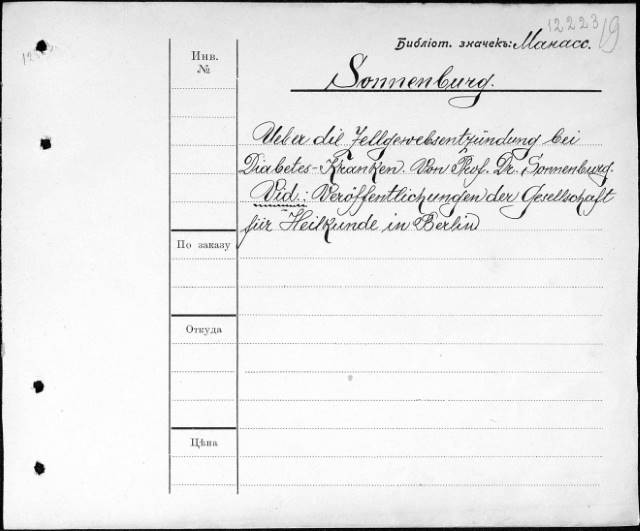 12223/9
Библіот. значекъ: Манасс.
Инв.
№
Sonnenburg.
Ueber die Zellgewebsentzündung bei
Diabetes-Kranken. Von Prof. Dr. Sonnenburg.
Vid.: Veröffentlichungen der Gesellschaft
für Heilkunde in Berlin
По заказу
Откуда
Цѣна